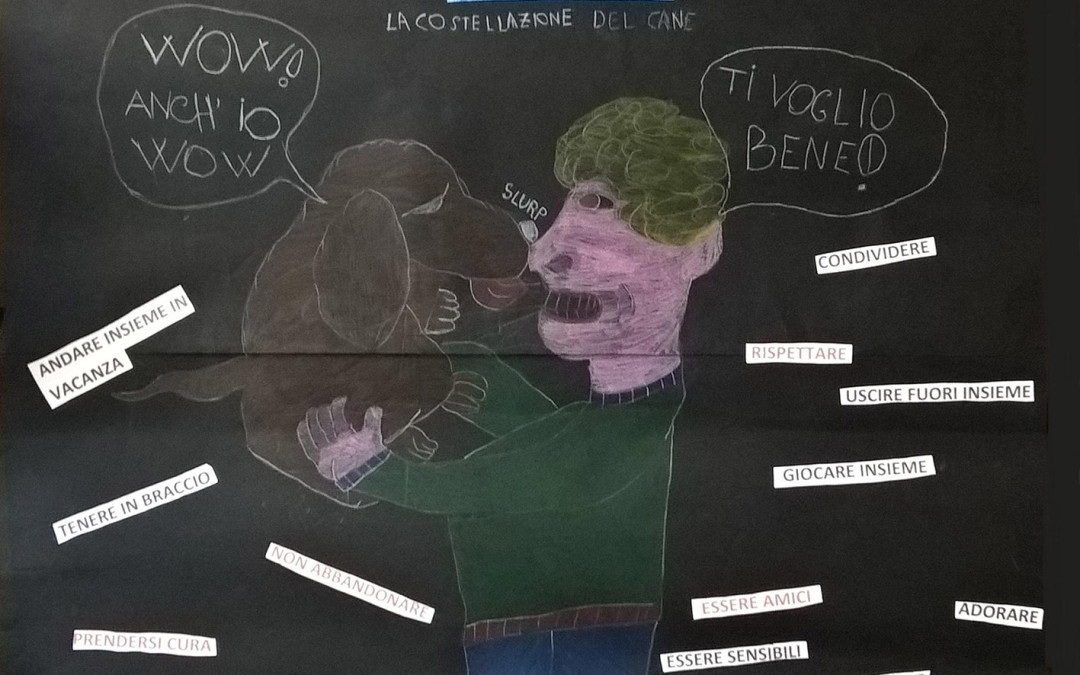 LA COSTELLAZIONE DEL CANE
WOW!
ANCH' IO
WOW
TI VOGLIO
BENE!
SLURP
CONDIVIDERE
ANDARE INSIEME IN
VACANZA
RISPETTARE
USCIRE FUORI INSIEME
GIOCARE INSIEME
TENERE IN BRACCIO
NON ABBANDONARE
ESSERE AMICI
ADORARE
PRENDERSI CURA
ESSERE SENSIBILI